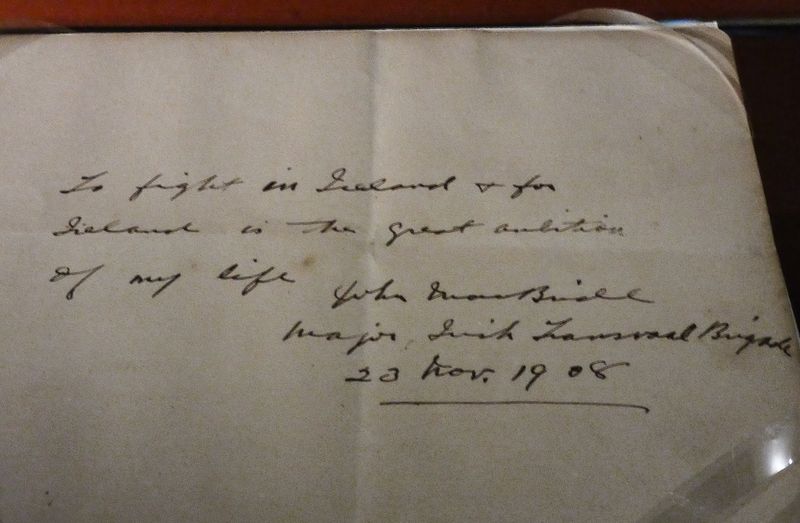 To fight in Ireland & for
Ireland is the great ambition
of my life
John MacBride
Major, Irish Transvaal Brigade
23 Nov. 1908